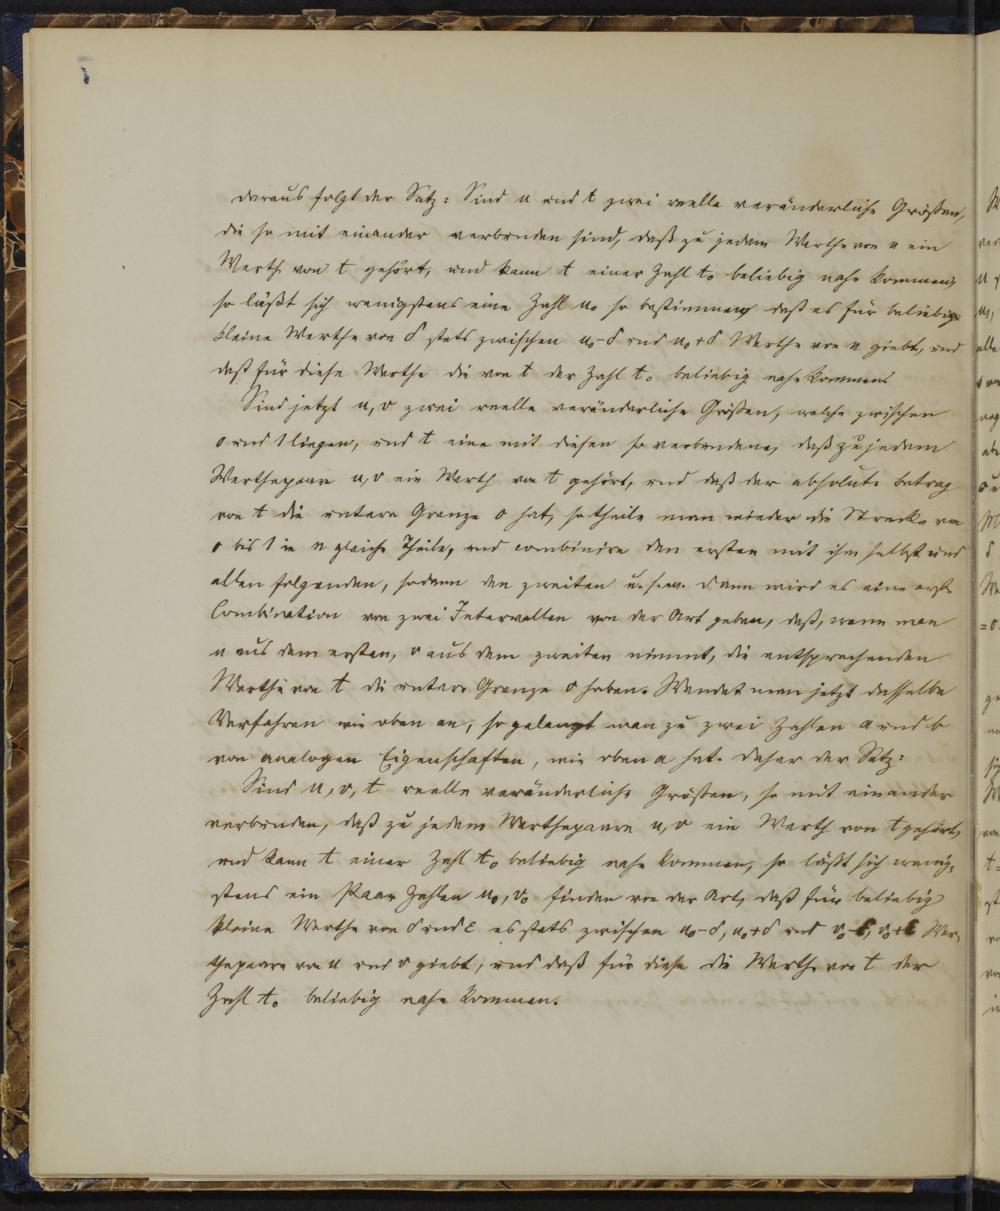 daraus folgt der Satz: Sind u und t zwei reelle veränderliche Größen,
die so mit einander verbunden sind, daß zu jedem Werthe von u ein
Werth von t gehört, und kann t einer Zahl t₀ beliebig nahe kommen,
so läßt sich wenigstens eine Zahl u₀ so bestimmen, daß es für beliebig
kleine Werthe von δ stets zwischen u₀-δ und u₀+δ Werthe von u giebt, und
daß für diese Werthe die von t der Zahl t₀ beliebig nahe kommen.
Sind jetzt u, v zwei reelle veränderliche Größen, welche zwischen
0 und 1 liegen, und t eine mit diesen so verbundene, daß zu jedem
Werthepaare u, v ein Werth von t gehört, und daß der absolute betrag
von t die untere Grenze 0 hat, so theile man wieder die Strecke von
0 bis 1 in n gleiche Theile, und combinire den ersten mit ihm selbst und
allen folgenden, sodann den zweiten u.s.w. dann wird es eine erste
Combination von zwei Intervallen von der Art geben, daß, wenn man
u aus dem ersten, v aus dem zweiten nimmt, die entsprechenden
Werthe von t die untere Grenze 0 haben. Wendet man jetzt dasselbe
Verfahren wie oben an, so gelangt man zu zwei Zahlen a und b
von analogen Eigenschaften, wie oben a hat. daher der Satz:
Sind u, v, t reelle veränderliche Größen, so mit einander
verbunden, daß zu jedem Werthepaare u, v ein Werth von t gehört,
und kann t einer Zahl t₀ beliebig nahe kommen, so läßt sich wenig-
stens ein Paar Zahlen u₀, v₀ finden von der Art, daß für beliebig
kleine Werthe von δ und ε es stets zwischen u₀-δ, u₀+δ und v₀-ε, v₀+ε Wer-
thepaare von u und v giebt, und daß für diese die Werthe von t der
Zahl t₀ beliebig nahe kommen.